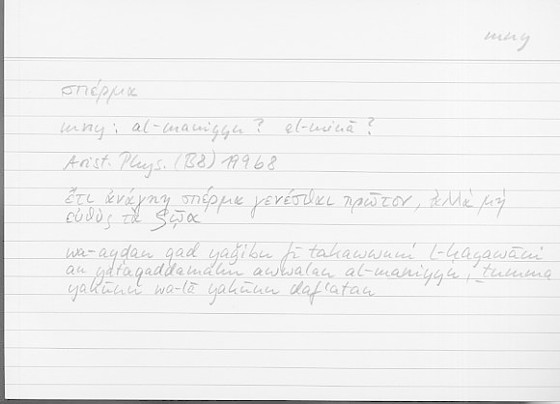 mny
σπέρμα
mny: al-maniyyu? al-minā?
Arist. Phys. (B8) 199b8
ἔτι ἀνάγκη σπέρμα γενέσθαι πρῶτον, ἀλλὰ μὴ
εὐθὺς τὰ ζῷα
wa-ayḍan qad yaǧibu fī takawwuni l-ḥayawāni
an yataqaddamahu awwalan al-maniyyu, ṯumma
yakūnu wa-lā yakūnu dafʿatan